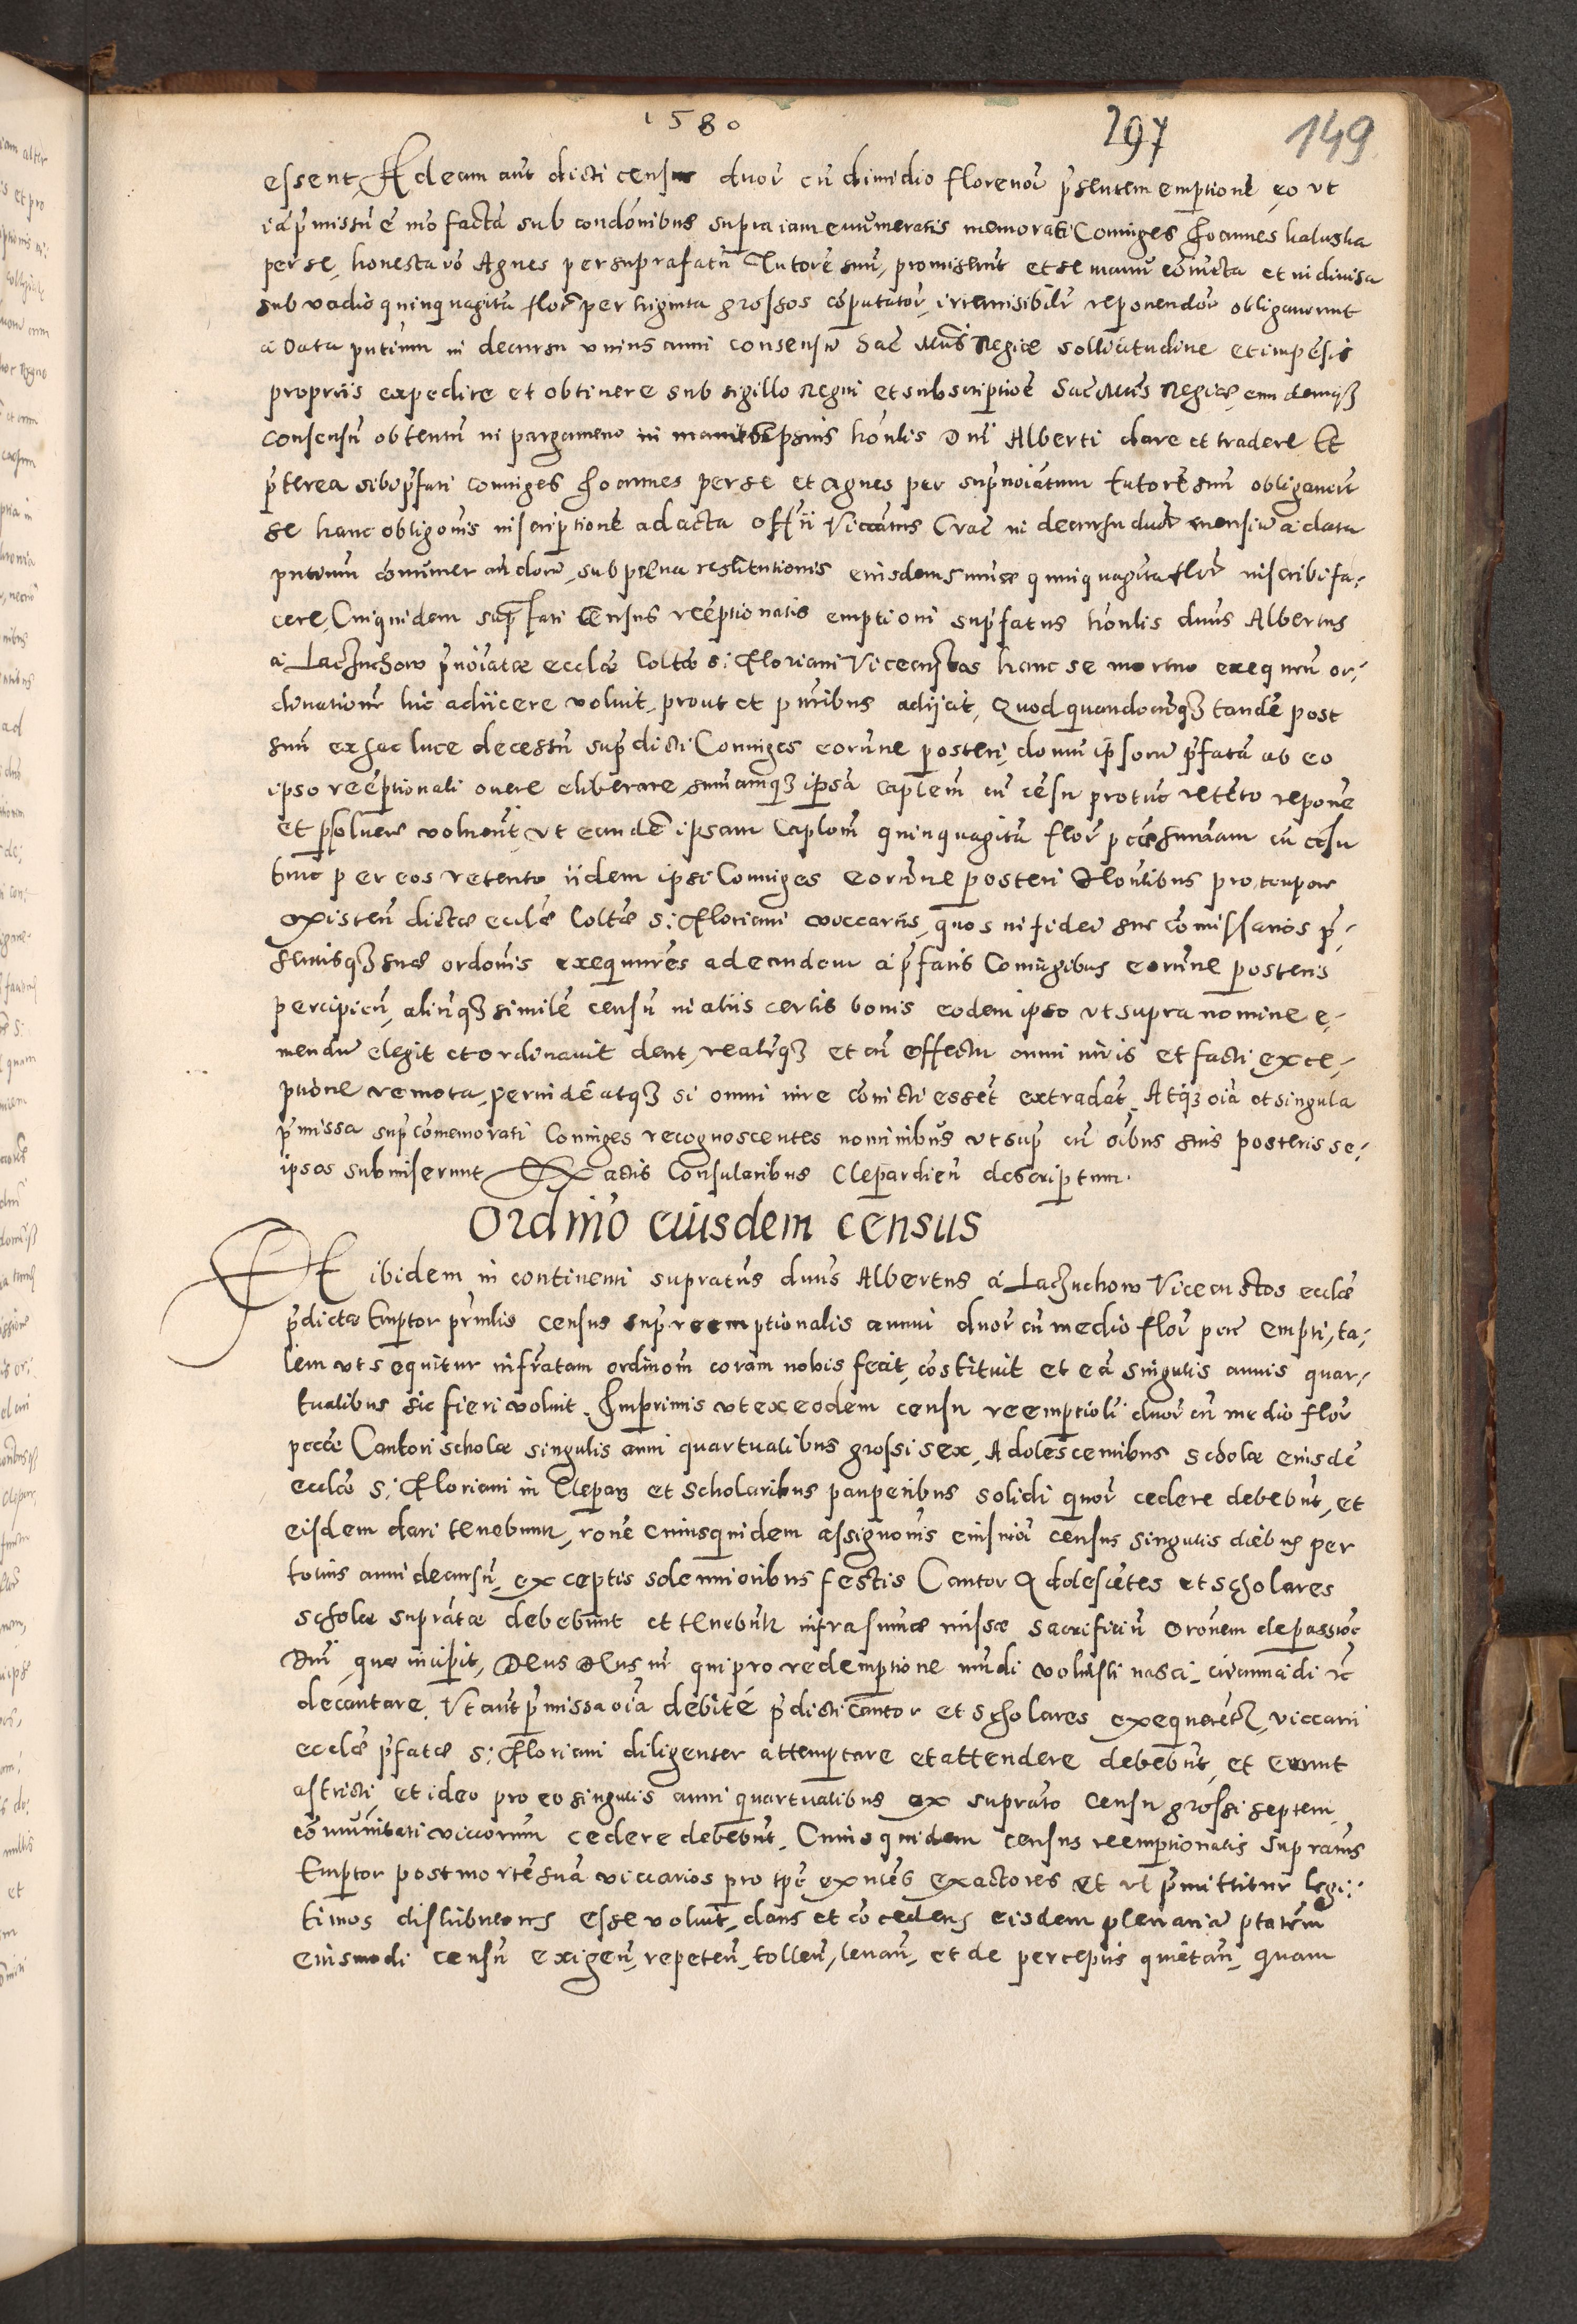 1580
297
149
essent, Ad eam aut dicti census duor cu dimidio florenor pr̄sentem emptione, eo ut
ia pr̄missu e mo facta sub conditionibus supra iam enumeratis memorati Coniuges Joannes kaluska
per se, honesta vo Agnes per suprafatu Tutore suu, promiserunt et se manu coniucta et indivisa
sub vadio quinquaginta flor per triginta grossos coputator, irremisibilr reponendor obligaverunt
a data pntium in decursu unius anni consensu Sac Mtis Regiae sollicitudine et impesis
propriis expedire et obtinere sub sigillo Regni et subscriptioe Sac Mtis Regiae, eundemq3
consensu obtentu in pargameno in manus ipsius honlis Dni Alberti dare et tradere. Et
pr̄terea sibi pr̄fati coniuges Joannes per se et Agnes per supnoiatum tutore suu obligaverut
se hanc obligonis inscriptione ad acta offii Viccatus Crac in decursu duor mensiu a data
pntium connumerandoru, sub poena restitutionis eiusdem sumae quinquaginta flor inscribi fa-
cere. Cuiquidem supr̄fati Census reeptionalis emptioni supr̄fatus honlis dnus Albertus
a Laczuchow pr̄noiatae eccliae Colltae S: Floriani Vicecustos hanc se mortuo exequen or-
dinatione hic adiicere voluit, prout et pntibus adiicit, Quod quandocuq3 tande post
suu ex hac luce decessu supr̄dicti Coniuges eorumne posteri, domu ipsoru pr̄fata ab eo
ipso reeptionali onere eliberare, summamq3 ipsa caplem cu cesu pro tuc reteto repone
et psolvere voluerit, ut eande ipsam Caplem quinquaginta flor pccae summam cu cesu
tunc per eos retento iidem ipsi Coniuges eorumne posteri Honlibus pro tempore
existen dictae eccliae Colltae S: Floriani viccariis, quos in fidei suae comissarios pr̄-
sentisq3 suae ordonis exequutores ad eandem a pr̄fatis Coniugibus eorumne posteris
percipien, aliuq3 simile censu in aliis certis bonis eodem ipso ut supra nomine e-
mendu elegit et ordinavit dent, realrq3 et cu effectu omni iuris et facti exce-
ptione remota, perinde atq3 si omni iure convicti essent extradat. Atq3 oia et singula
pr̄missa supr̄comemorati Coniuges recognoscentes nominibus ut supr̄ cu oibus suis posteris se-
ipsos submiserunt. Ex actis Consularibus Clepardien descriptum.
Ordinō eiusdem census
Et ibidem in continenti supratus dnus Albertus a Laczuchow Vicecustos eccliae
pr̄dictae Emptor prn̄lis census supr̄ reemptionalis annui duor cu medio flor pccae empti, ta-
lem ut sequitur infratam ordinom coram nobis fecit, costituit et ea singulis annis quar-
tualibus sic fieri voluit. Imprimis ut ex eodem censu reemptioli duor cu medio flor
pccae Cantori scholae singulis anni quartualibus grossi sex, Adolescentibus scolae eiusde
eccliae S: Floriani in Clepar3 et scholaribus pauperibus solidi quor cedere debebut, et
eisdem dari tenebuntur, rone cuiusquidem assignonis eiusmoi census singulis diebus per
totius anni decursu, exceptis solennioribus festis Cantor Adolescetes et scholares
scholae supratae debebunt et tenebutur infra sumae missae sacrificiu oronem de passioe
Dni quae incipit, Deus Deus nr qui pro redemptione mundi voluisti nasci, circumcidi etc
decantare. Ut aut pr̄missa oia debite pr̄dicti cantor et scholares exequeretur, viccarii
eccliae pr̄fatae S: Floriani diligenter attemptare et attendere debebut, et erunt
astricti, et ideo pro eo singulis anni quartualibus ex suprato Censu grossi septem
comunitati viccorum cedere debebut. Cuiusquidem census reemptionalis supratus
Emptor post morte sua viccarios pro tpe exntes exactores et ut pr̄mittitur legi-
timos distributores esse voluit, dans et cocedens eisdem plenaria ptatem
eiusmodi censu exigen, repeten, tollen, levan, et de perceptis quietan, quam